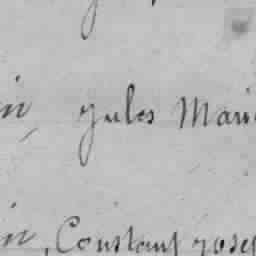 in, Jules Marie
in, Constant Josep